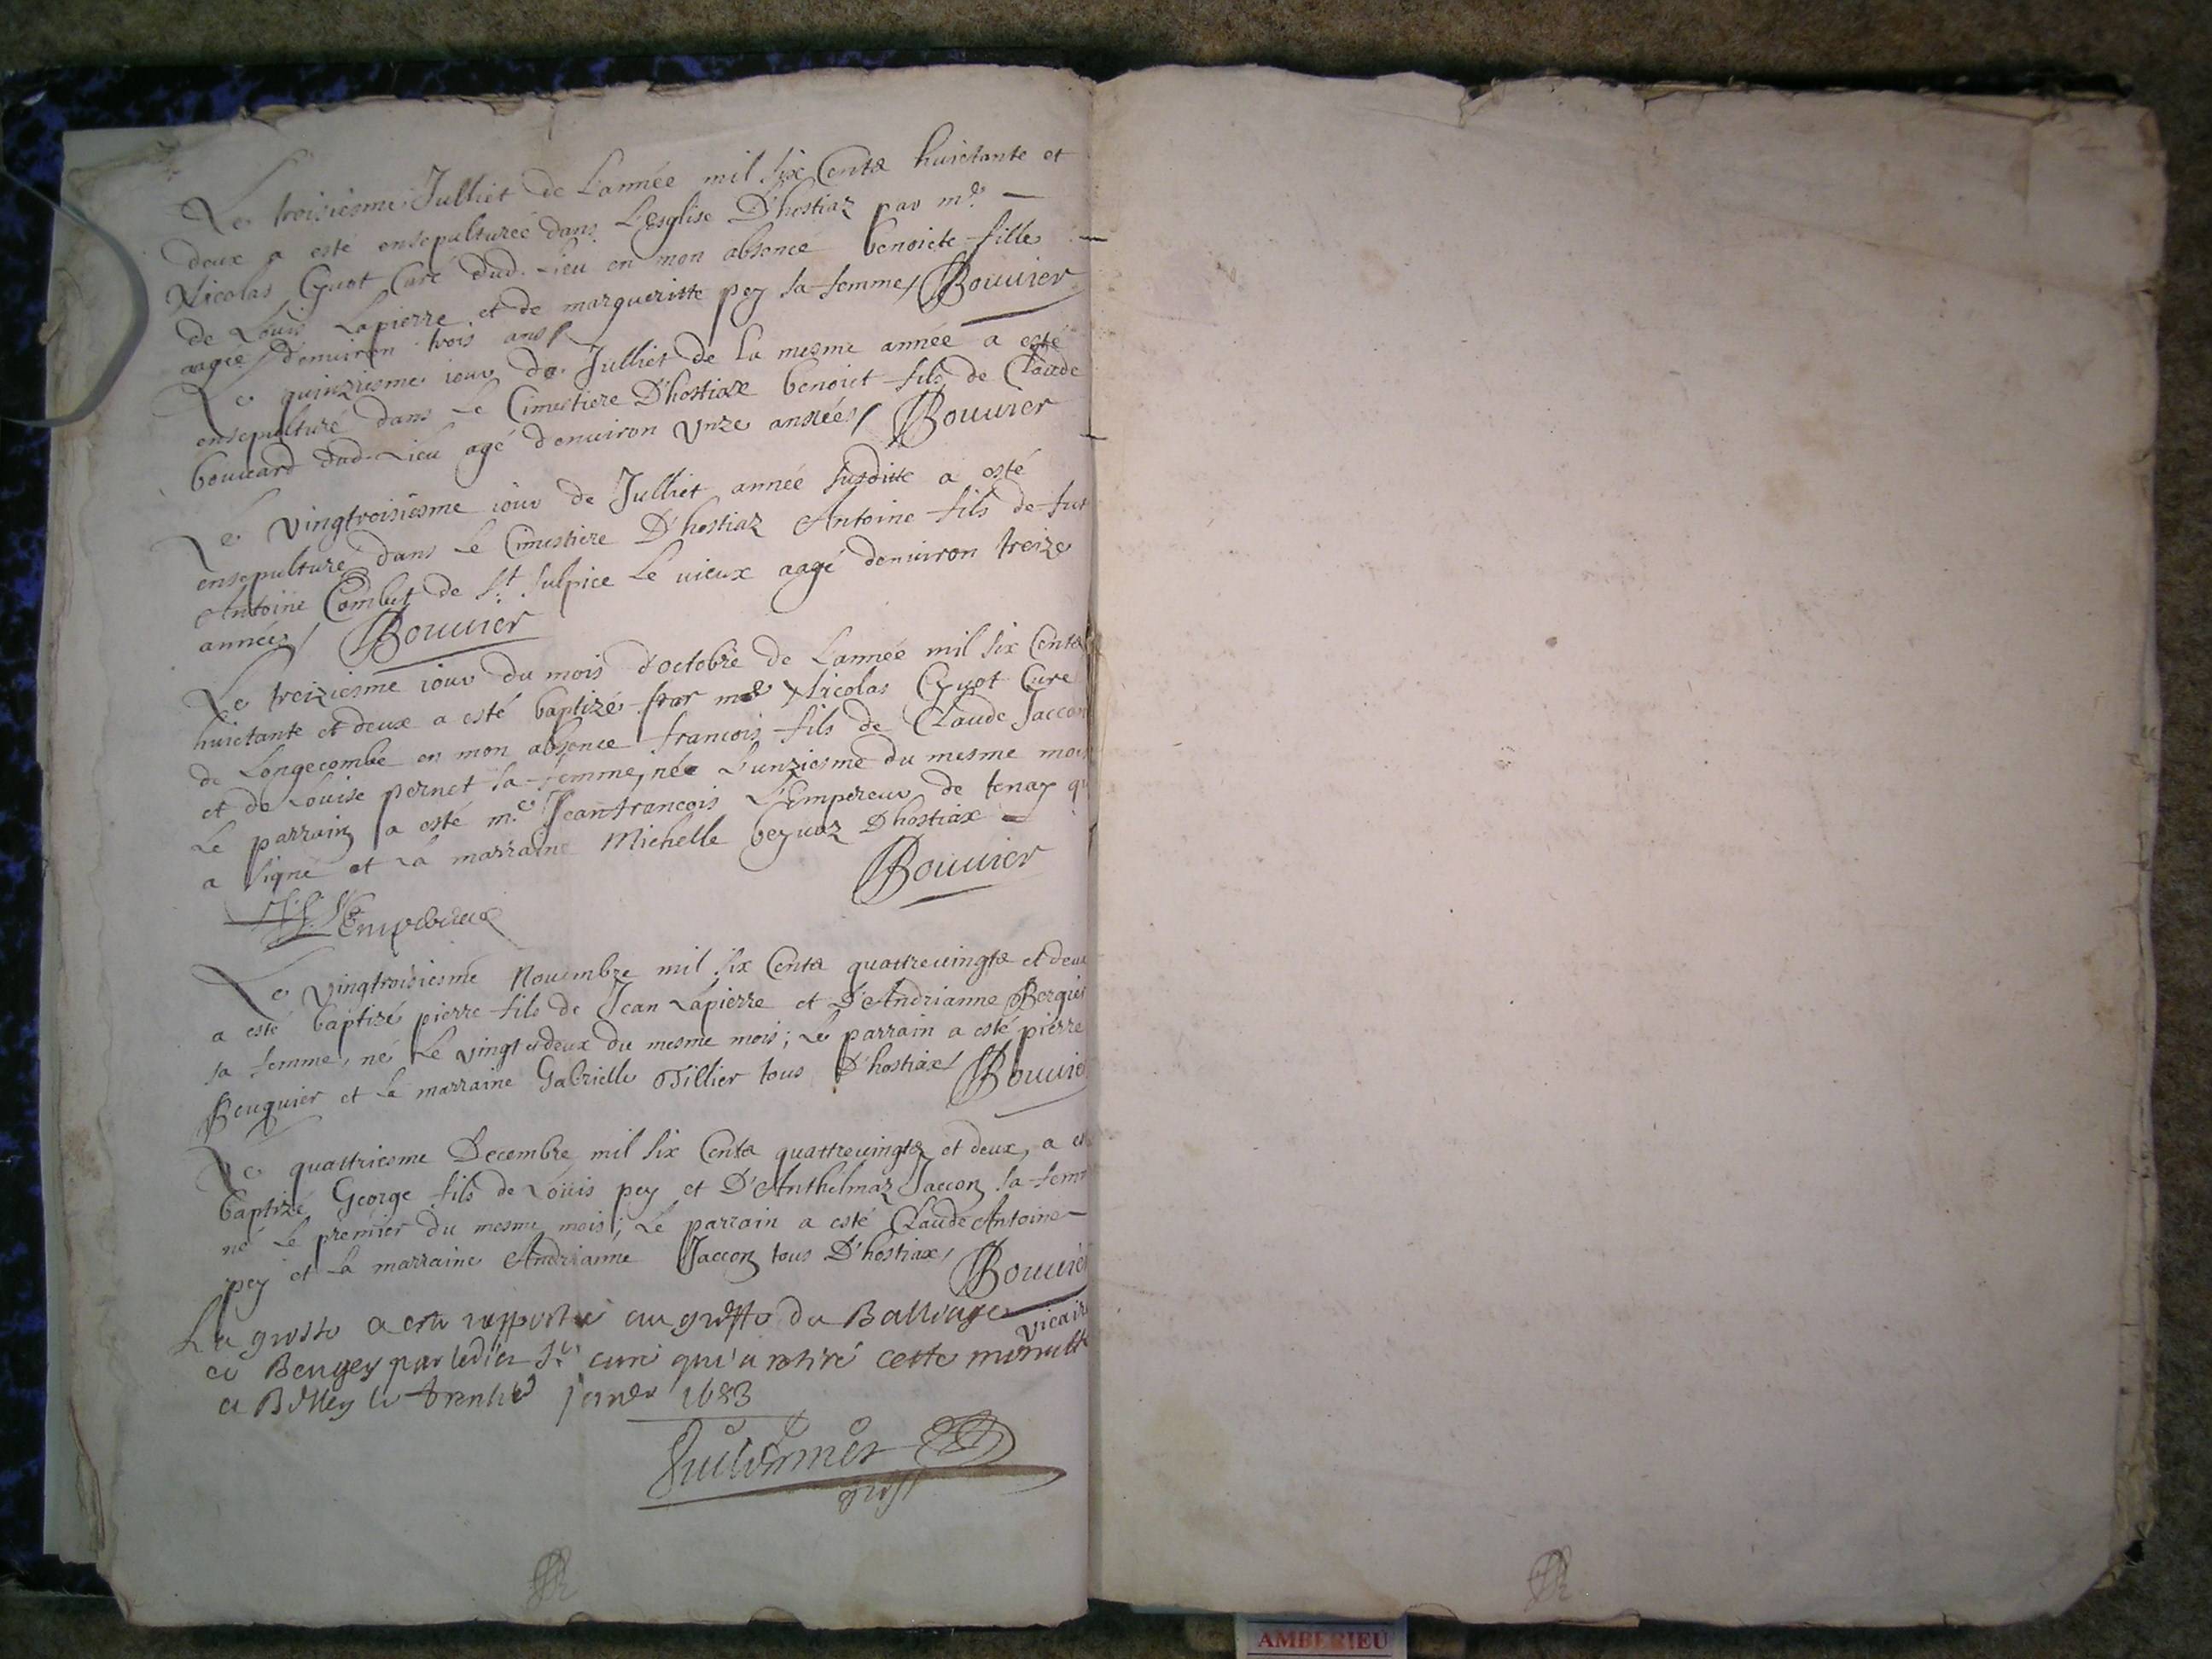 Le troisiesme Julliet de L'année mil six Centz huictante et
deux a esté ensepulturée dans L'Esglise D'hostiaz par m.e
Nicolas Guot Curé dud. Lieu en mon absence benoicte fille
de Louis Lapierre et de margueritte pey sa femme / Bouuier
aagée d'enuiron trois ans /
Le quinziesme iour de Julliet de La mesme année a esté
ensepulturé dans Le Cimestiere D'hostiax benoict fils de Claude
dud. Lieu agé d'enuiron Vnze années / Bouuier
Le vingtroisiesme iour de Julliet année susditte a esté
ensepulturé dans Le Cimestiere D'hostiaz Antoine fils de fut
Antoine Combet de S.t Sulpice Le vieux aagé denuiron treize
années / Bouuier
Le treiziesme iour du mois d'octobre de L'année mil six Centz
huictante et deux a esté baptizé par m.e Nicolas Guot Cure
de Longecombe en mon absence francois fils de Claude Jaccon
et de Louise pernet sa femme, née L'unziesme du mesme mois
Le parrain a esté m.e Jeanfrancois L'Empereur de tenay qu
a signé et La marraine Michelle beyuaz D'hostiax
Bouuier
J.f. L'Empereur
Le vingtroisiesme Nouembre mil six Centz quattreuingtz et deux
a esté baptizé pierre fils de Jean Lapierre et D'Andrianne Berquier
sa femme, né Le vingt et deux du mesme mois; Le parrain a esté pierre
et La marraine Gabrielle Tillier tous D'hostiax / Bouuier
Le quattriesme Decembre mil six Centz quattreuingtz et deux, a es
baptizé George fils de Loüis pey et D'Anthelmaz Jaccon sa fem
né Le premier du mesme mois; Le parrain a esté Claude Antoine
pey et La marraine Andrianne Jaccon tous D'hostiax, Bouuier
vicaire
La grosse a esté rapportée au greffe du Balliage
de Beugey par ledict S.r curé qui a retiré cette minutte
a Belley le trente janer 1683
greff
AMBERIEU